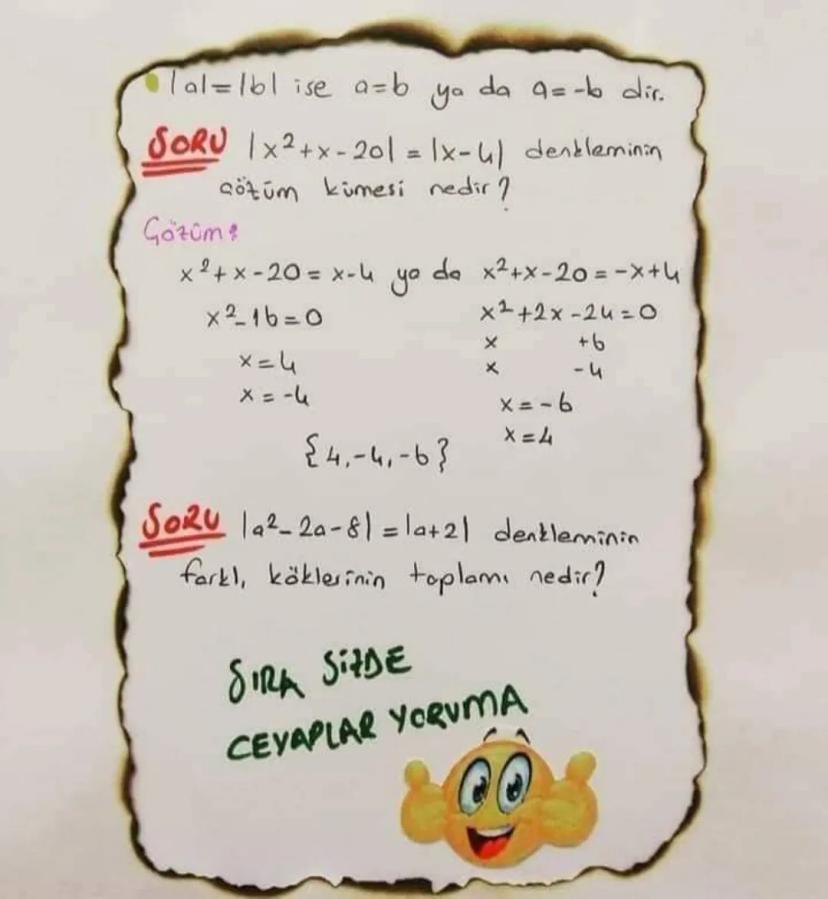 |a|=|b| ise a=b ya da a=-b dir.
SORU |x²+x-20| = |x-4| denkleminin
çözüm kümesi nedir?
Çözüm:
x²+x-20 = x-4 ya da x²+x-20 = -x+4
x²-16=0 x²+2x-24=0
x +6
x=4 x -4
x=-4 x=-6
{4,-4,-6} x=4
SORU |a²-2a-8| = |a+2| denkleminin
farklı köklerinin toplamı nedir?
SIRA SİZDE
CEVAPLAR YORUMA